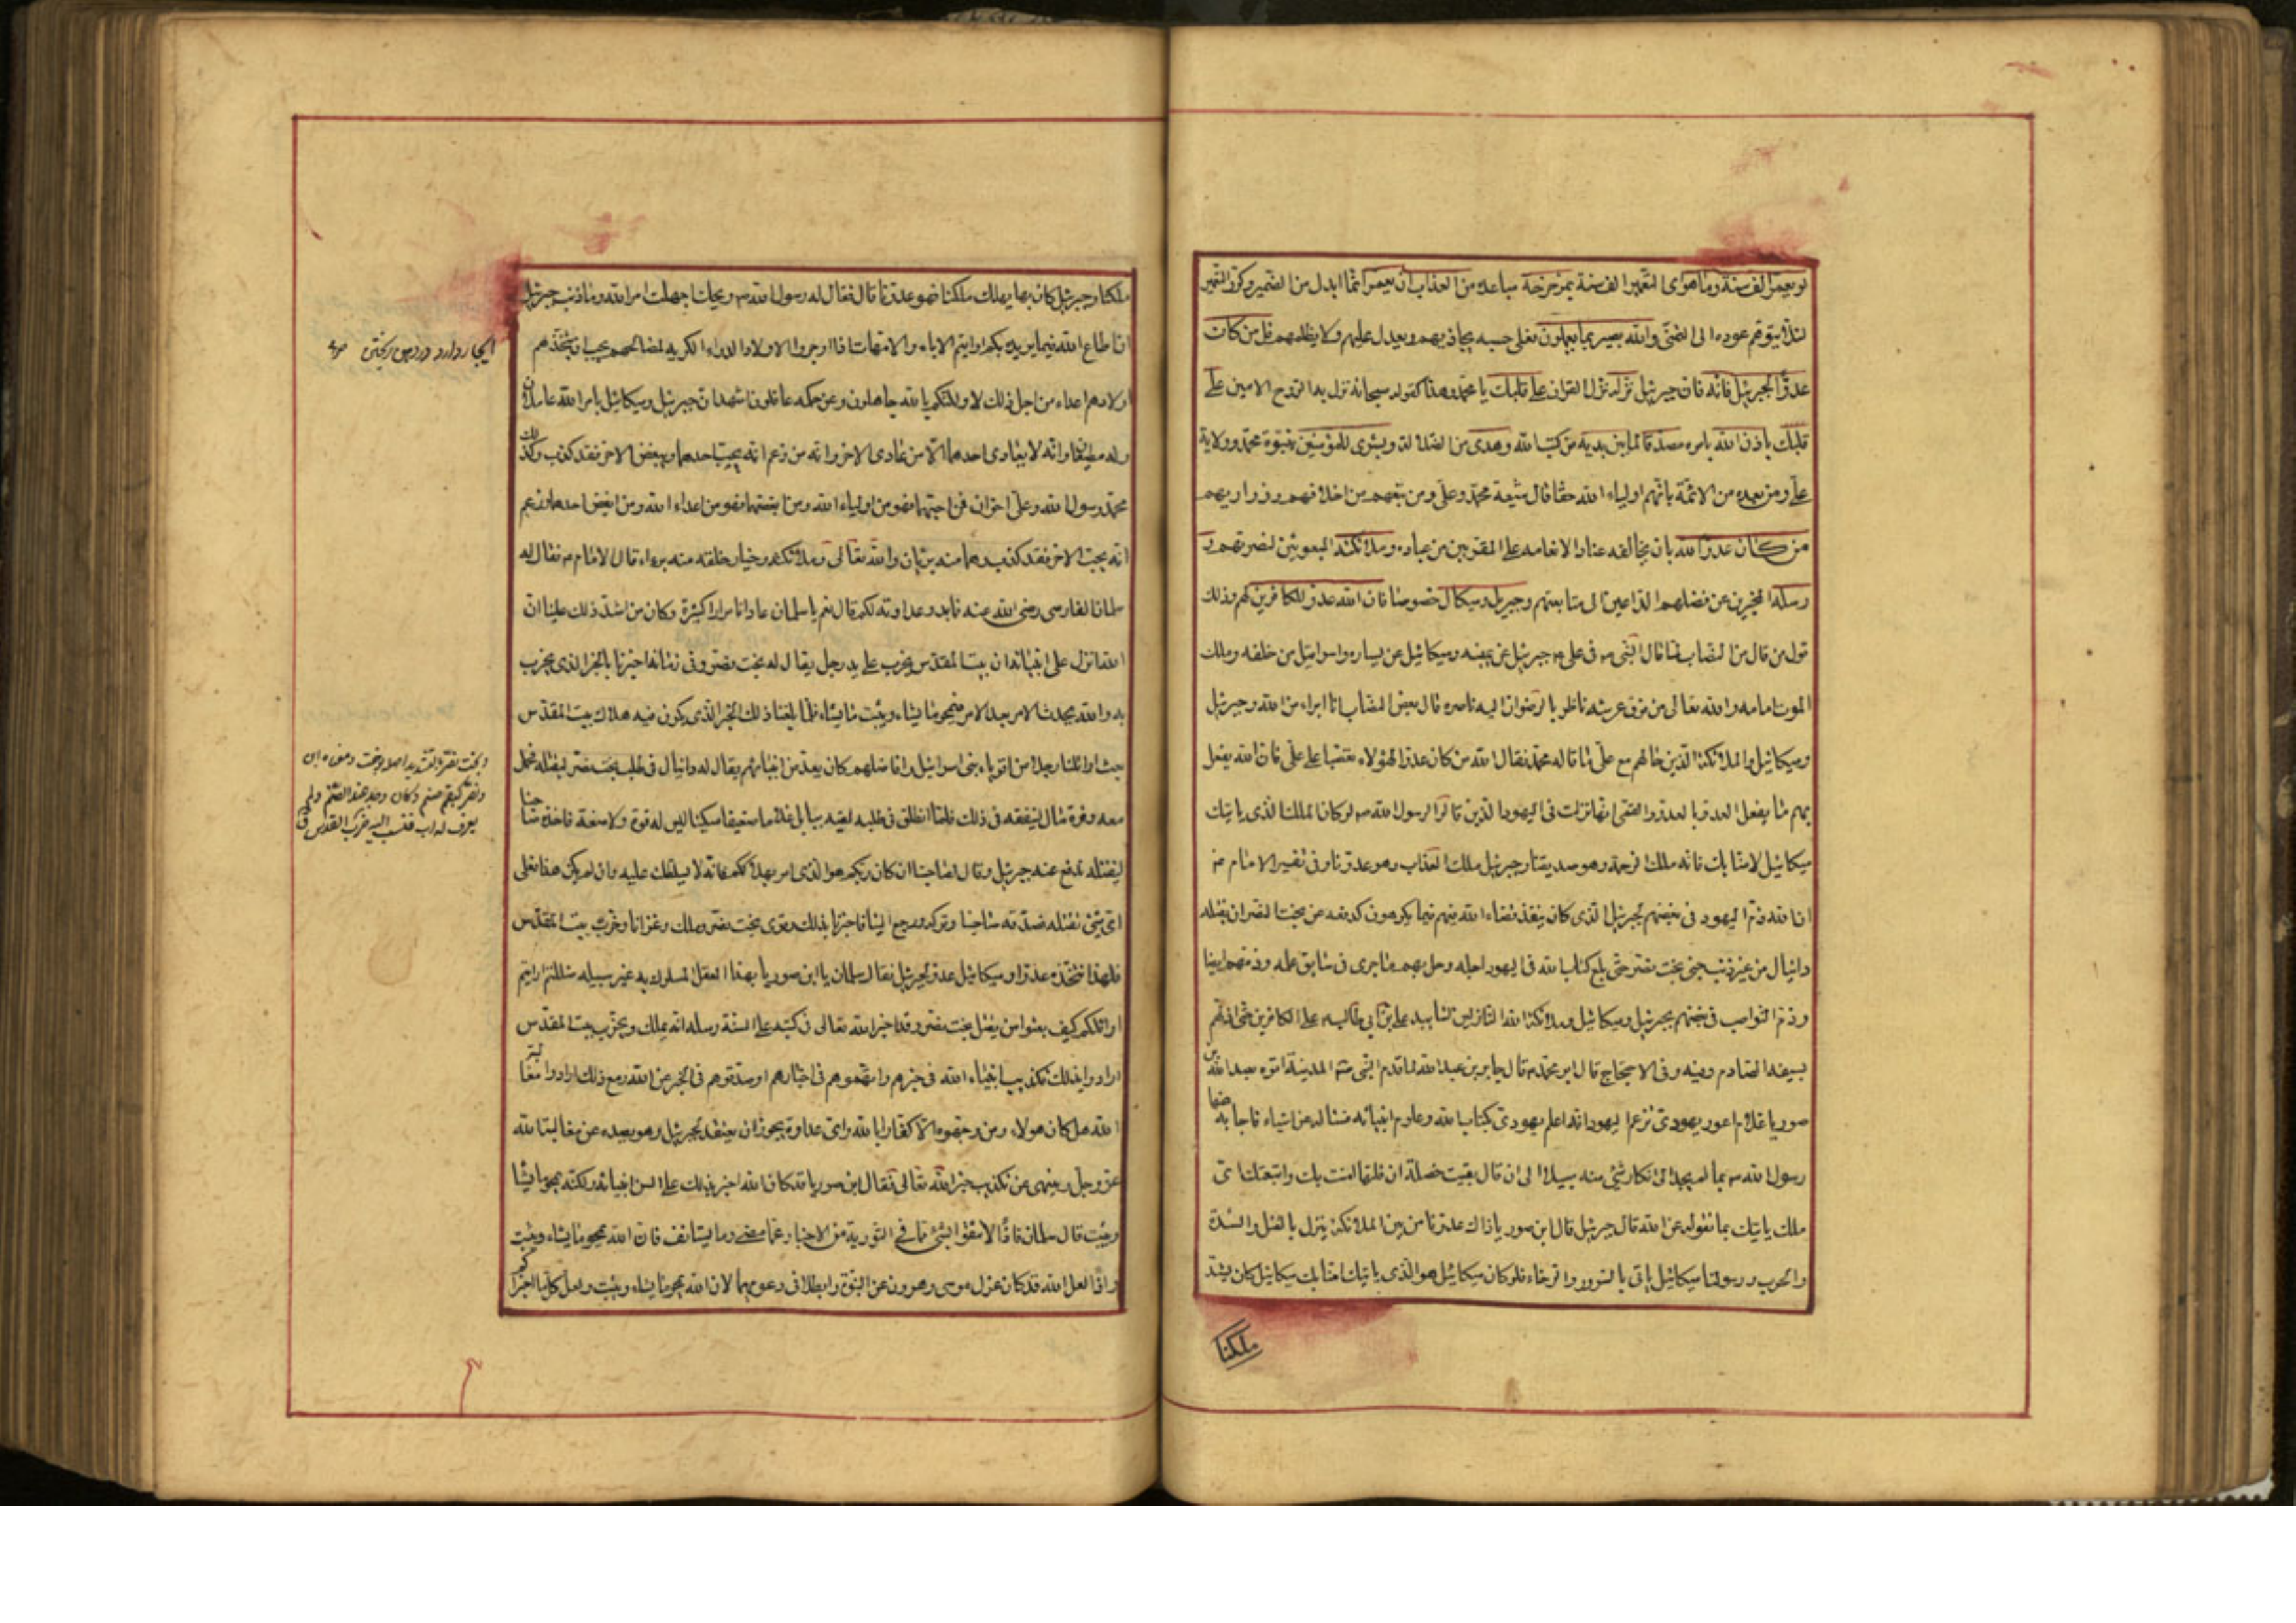 لو يعمر الف سنة وما هو اى التعمير الف سنة بمزحزحه مباعده من العذاب ان يعمر انما ابدل من الضمير وكرر التعمير
لئلا يتوهم عوده الى التمنى والله بصير بما يعملون فعلى حسبه يجازيهم ويعدل عليهم ولا يظلمهم قل من كان
عدوا لجبرئيل فانه فان جبرئيل نزله نزل القران على قلبك يا محمد وهذا كقوله سبحانه نزل به الروح الامين على
قلبك باذن الله بامره مصدقا لما بين يديه من كتب الله وهدى من الضلالة وبشرى للمؤمنين بنبوة محمد وولاية
على ومن بعده من الائمة بانهم اولياء الله حقا قال شيعة محمد وعلى ومن تبعهم من اخلافهم وذراريهم
من كان عدوا لله بان يخالفه عنادا لانعامه على المقربين من عباده وملائكته المبعوثين لنصرتهم و
رسله المخبرين عن فضلهم الداعين الى متابعتهم وجبريل وميكال خصوصا فان الله عدو للكافرين لهم وذلك
قول من قال من النصاب لما قال النبى ص فى على ع جبرئيل عن يمينه وميكائيل عن يساره واسرافيل من خلفه وملك
الموت امامه والله تعالى من فوق عرشه ناظر بالرضوان اليه ناصره قال بعض النصاب انا ابراء من الله وجبرئيل
وميكائيل والملائكة الذين حالهم مع على ما قاله محمد فقال الله من كان عدوا لهؤلاء تعصبا على على فان الله يفعل
بهم ما يفعل العدو بالعدو والقمى انها نزلت فى اليهود الذين قالوا لرسول الله ص لو كان الملك الذى ياتيك
ميكائيل لامنا بك فانه ملك الرحمة وهو صديقنا وجبرئيل ملك العذاب وهو عدونا وفى تفسير الامام ع
ان الله ذم اليهود فى بغضهم لجبرئيل الذى كان ينفذ قضاء الله فيهم فيما يكرهون كدفعه عن بخت نصر ان يقتله
دانيال من غير ذنب جنى بخت نصر حتى بلغ كتاب الله فى اليهود اجله وحل بهم ما جرى فى سابق علمه وذمهم ايضا
وذم النواصب فى بغضهم لجبرئيل وميكائيل وملائكة الله النازلين لتاييد على بن ابى طالب ع على الكافرين حتى اذلهم
بسيفه الصارم وفيه وفى الاحتجاج قال ابو محمد ع قال جابر بن عبد الله لما قدم النبى ص المدينة اتوه بعبد الله بن
صوريا غلام اعور يهودى تزعم اليهود انه اعلم يهودى بكتاب الله وعلوم انبيائه فسأله عن اشياء فاجابه عنها
رسول الله ص بما لم يجد الى انكار شئ منه سبيلا الى ان قال بقيت خصلة ان قلتها امنت بك واتبعتك اى
ملك ياتيك بما تقوله عن الله قال جبرئيل قال ابن صوريا ذاك عدونا من بين الملائكة ينزل بالقتل والشدة
والحرب ورسولنا ميكائيل ياتى بالسرور والرخاء فلو كان ميكائيل هو الذى ياتيك امنا بك ميكائيل كان يشد
ملكنا
ملكنا وجبرئيل كان يهلك ملكنا فهو عدونا قال فقال له رسول الله ص ويحك اجهلت امر الله وما ذنب جبرئيل
ان اطاع الله فيما يريده بكم ارايتم الاباء والامهات اذا اوجروا الاولاد الدواء الكريه لمصالحهم يجب ان يتخذهم
اولادهم اعداء من اجل ذلك لا ولكنكم بالله جاهلون وعن حكمه غافلون اشهد ان جبرئيل وميكائيل بامر الله عاملان
وله مطيعان وانه لا يعادى احدهما الا من عادى الاخر وانه من زعم انه يحب احدهما ويبغض الاخر فقد كذب وكذلك
محمد رسول الله وعلى اخوان فمن احبهما فهو من اولياء الله ومن ابغضهما فهو من اعداء الله ومن ابغض احدهما وزعم
انه يحب الاخر فقد كذب وهما منه بريئان والله تعالى وملائكته وخيار خلقه منه براء قال الامام ع فقال له
سلمان الفارسى رضى الله عنه فما بدو عداوته لكم قال نعم يا سلمان عادانا مرارا كثيرة وكان من اشد ذلك علينا ان
الله انزل على انبيائه ان بيت المقدس يخرب على يد رجل يقال له بخت نصر وفى زمانه اخبرنا بالحين الذى يخرب
به والله يحدث الامر بعد الامر فيمحو ما يشاء ويثبت ما يشاء فلما بلغنا ذلك الحين الذى يكون فيه هلاك بيت المقدس
بعث اوائلنا رجلا من اقوياء بنى اسرائيل وافاضلهم كان يعد من انبيائهم يقال له دانيال فى طلب بخت نصر ليقتله فحمل
معه وقرة مال لينفقه فى ذلك فلما انطلق فى طلبه لقيه ببابل غلاما ضعيفا مسكينا ليس له قوة ولا منعة فاخذه صاحبنا
ليقتله فدفع عنه جبرئيل وقال لصاحبنا ان كان ربكم هو الذى امر بهلاككم فانه لا يسلطك عليه وان لم يكن هذا فعلى
اى شئ تقتله فصدقه صاحبنا وتركه ورجع الينا فاخبرنا بذلك وقوى بخت نصر وملك وغزانا وخرب بيت المقدس
فلهذا نتخذه عدوا وميكائيل عدو لجبرئيل فقال سلمان يا ابن صوريا بهذا العقل المسلوك به غير سبيله ضللتم ارايتم
اوائلكم كيف بعثوا من يقتل بخت نصر وقد اخبر الله تعالى فى كتبه على السنة رسله انه يملك ويخرب بيت المقدس
ارادوا بذلك تكذيب انبياء الله فى خبرهم واتهموهم فى اخبارهم او صدقوهم فى الخبر عن الله ومع ذلك ارادوا مغالبة
الله هل كان هولاء ومن وجهوه الا كفارا بالله واى عداوة يجوز ان يعتقد لجبرئيل وهو يصد عن مغالبة الله
عز وجل وينهى عن تكذيب خبر الله تعالى فقال ابن صوريا قد كان الله اخبر بذلك على السن انبيائه ولكنه يمحو ما يشاء
ويثبت قال سلمان فاذا لا تثقوا بشئ مما فى التورية من الاخبار عما مضى وما يستانف فان الله يمحو ما يشاء ويثبت
واذا لعل الله قد كان عزل موسى وهرون عن النبوة وابطلا فى دعويهما لان الله يمحو ما يشاء ويثبت ولعل كلما اخبراكم